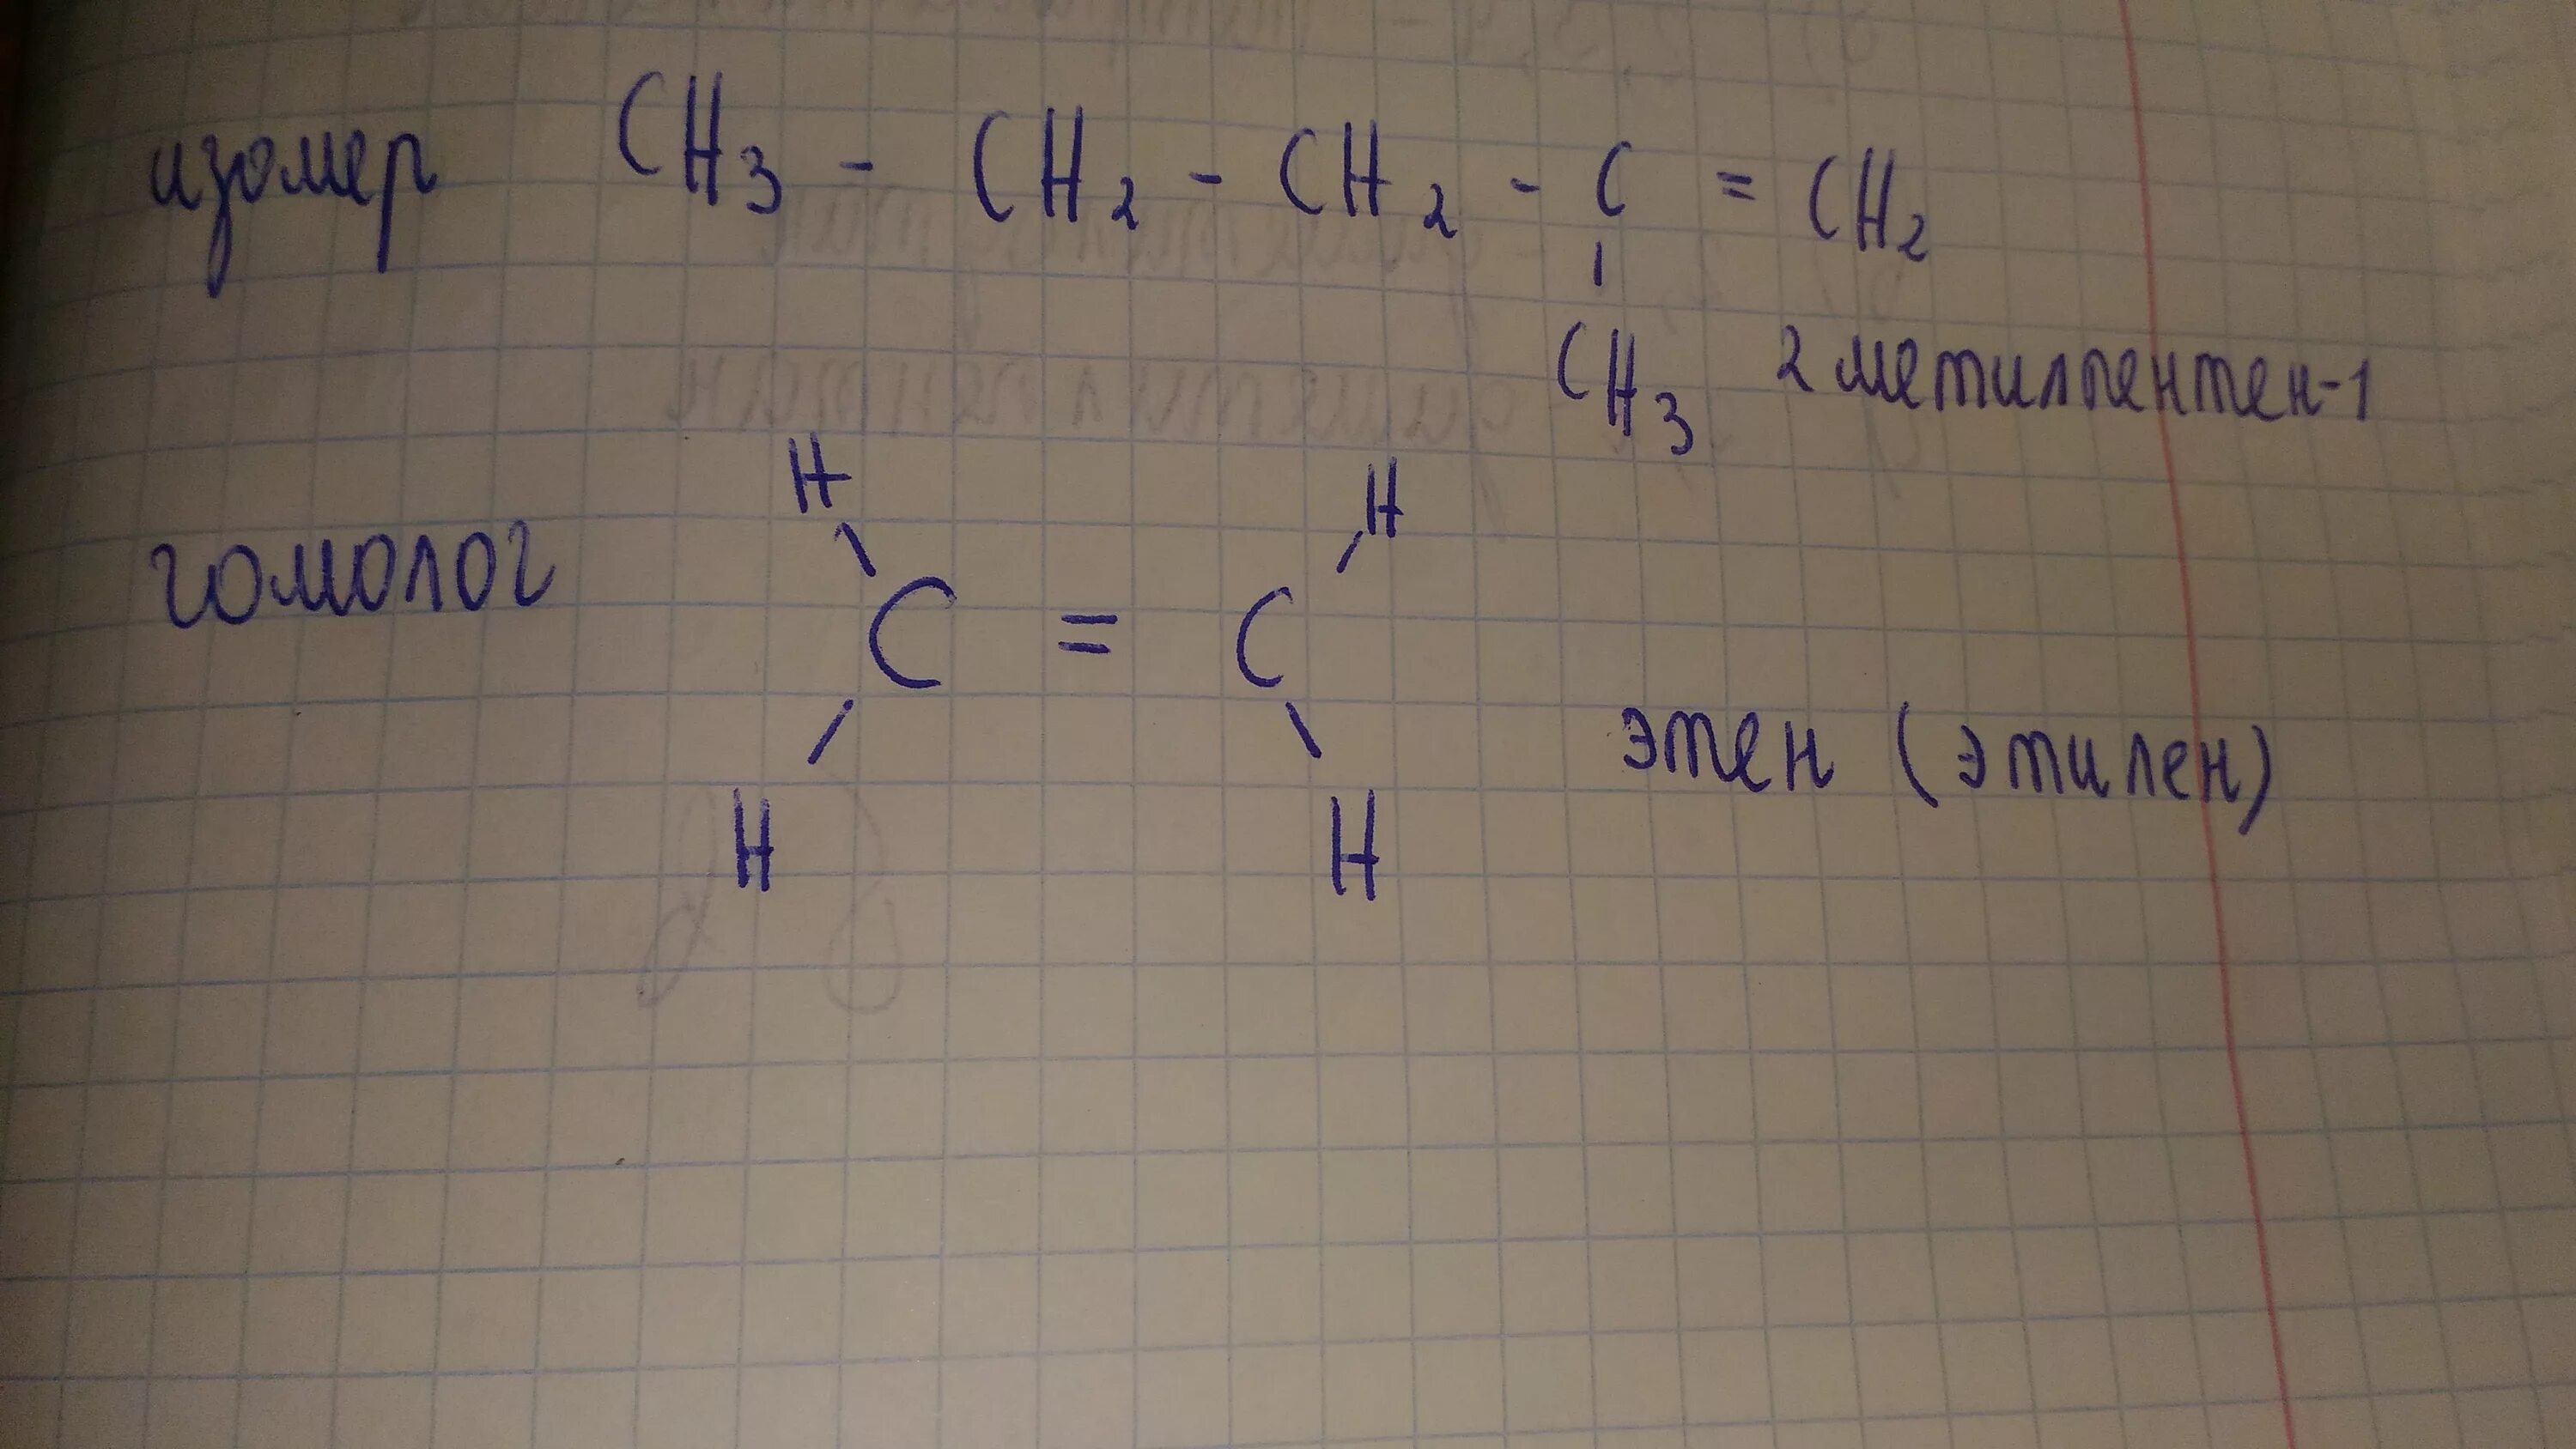 изомер CH3 - CH2 - CH2 - C = CH2
CH3 2 метилпентен-1
H H
гомолог C = C
этен (этилен)
H H